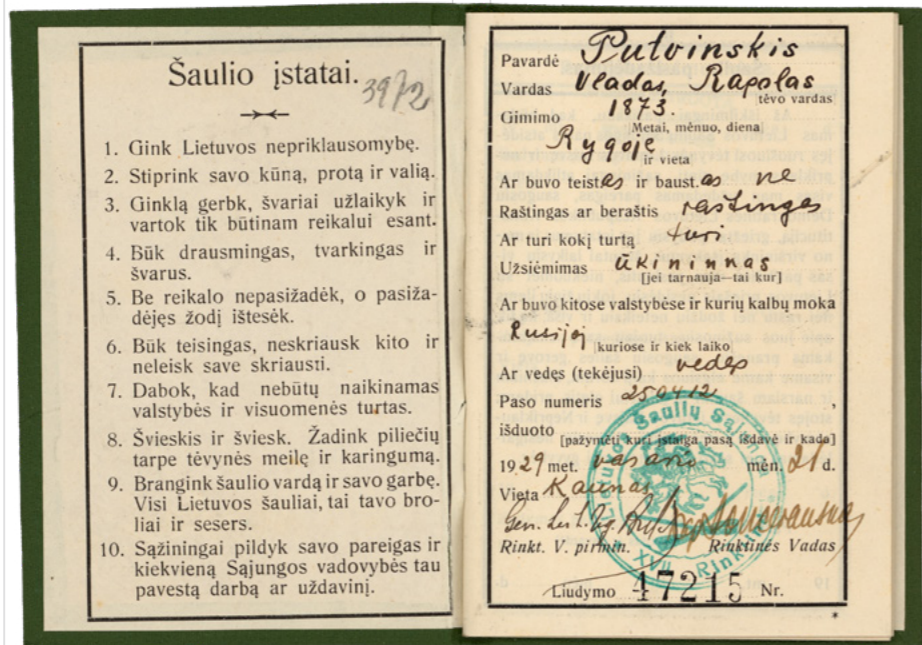 Šaulio įstatai.
3972
1. Gink Lietuvos nepriklausomybę.
2. Stiprink savo kūną, protą ir valią.
3. Ginklą gerbk, švariai užlaikyk ir
vartok tik būtinam reikalui esant.
4. Būk drausmingas, tvarkingas ir
švarus.
5. Be reikalo nepasižadėk, o pasiža-
dėjęs žodį ištesėk.
6. Būk teisingas, neskriausk kito ir
neleisk save skriausti.
7. Dabok, kad nebūtų naikinamas
valstybės ir visuomenės turtas.
8. Švieskis ir šviesk. Žadink piliečių
tarpe tėvynės meilę ir karingumą.
9. Brangink šaulio vardą ir savo garbę.
Visi Lietuvos šauliai, tai tavo bro-
liai ir sesers.
10. Sąžiningai pildyk savo pareigas ir
kiekvieną Sąjungos vadovybės tau
pavestą darbą ar uždavinį.
Pavardė Putvinskis
Vardas Vladas, Rapolas
tėvo vardas
Gimimo 1873.
[Metai, mėnuo, diena]
Rygoje ir vieta
Ar buvo teistas ir baust.as ne
Raštingas ar beraštis raštingas
Ar turi kokį turtą turi
Užsiėmimas ūkininnas
[jei tarnauja—tai kur]
Ar buvo kitose valstybėse ir kurių kalbų moka
Rusijoj
[kuriose ir kiek laiko]
Ar vedęs (tekėjusi) vedęs
Paso numeris 250412,
išduoto
[pažymėti kuri įstaiga pasą išdavė ir kada]
1929 met. vasario mėn. 21 d.
Vieta Kaunas
Rinkt. V. pirmin. Rinktinės Vadas
Šaulių Sąjunga
XVII Rinktinė
Liudymo 47215 Nr.